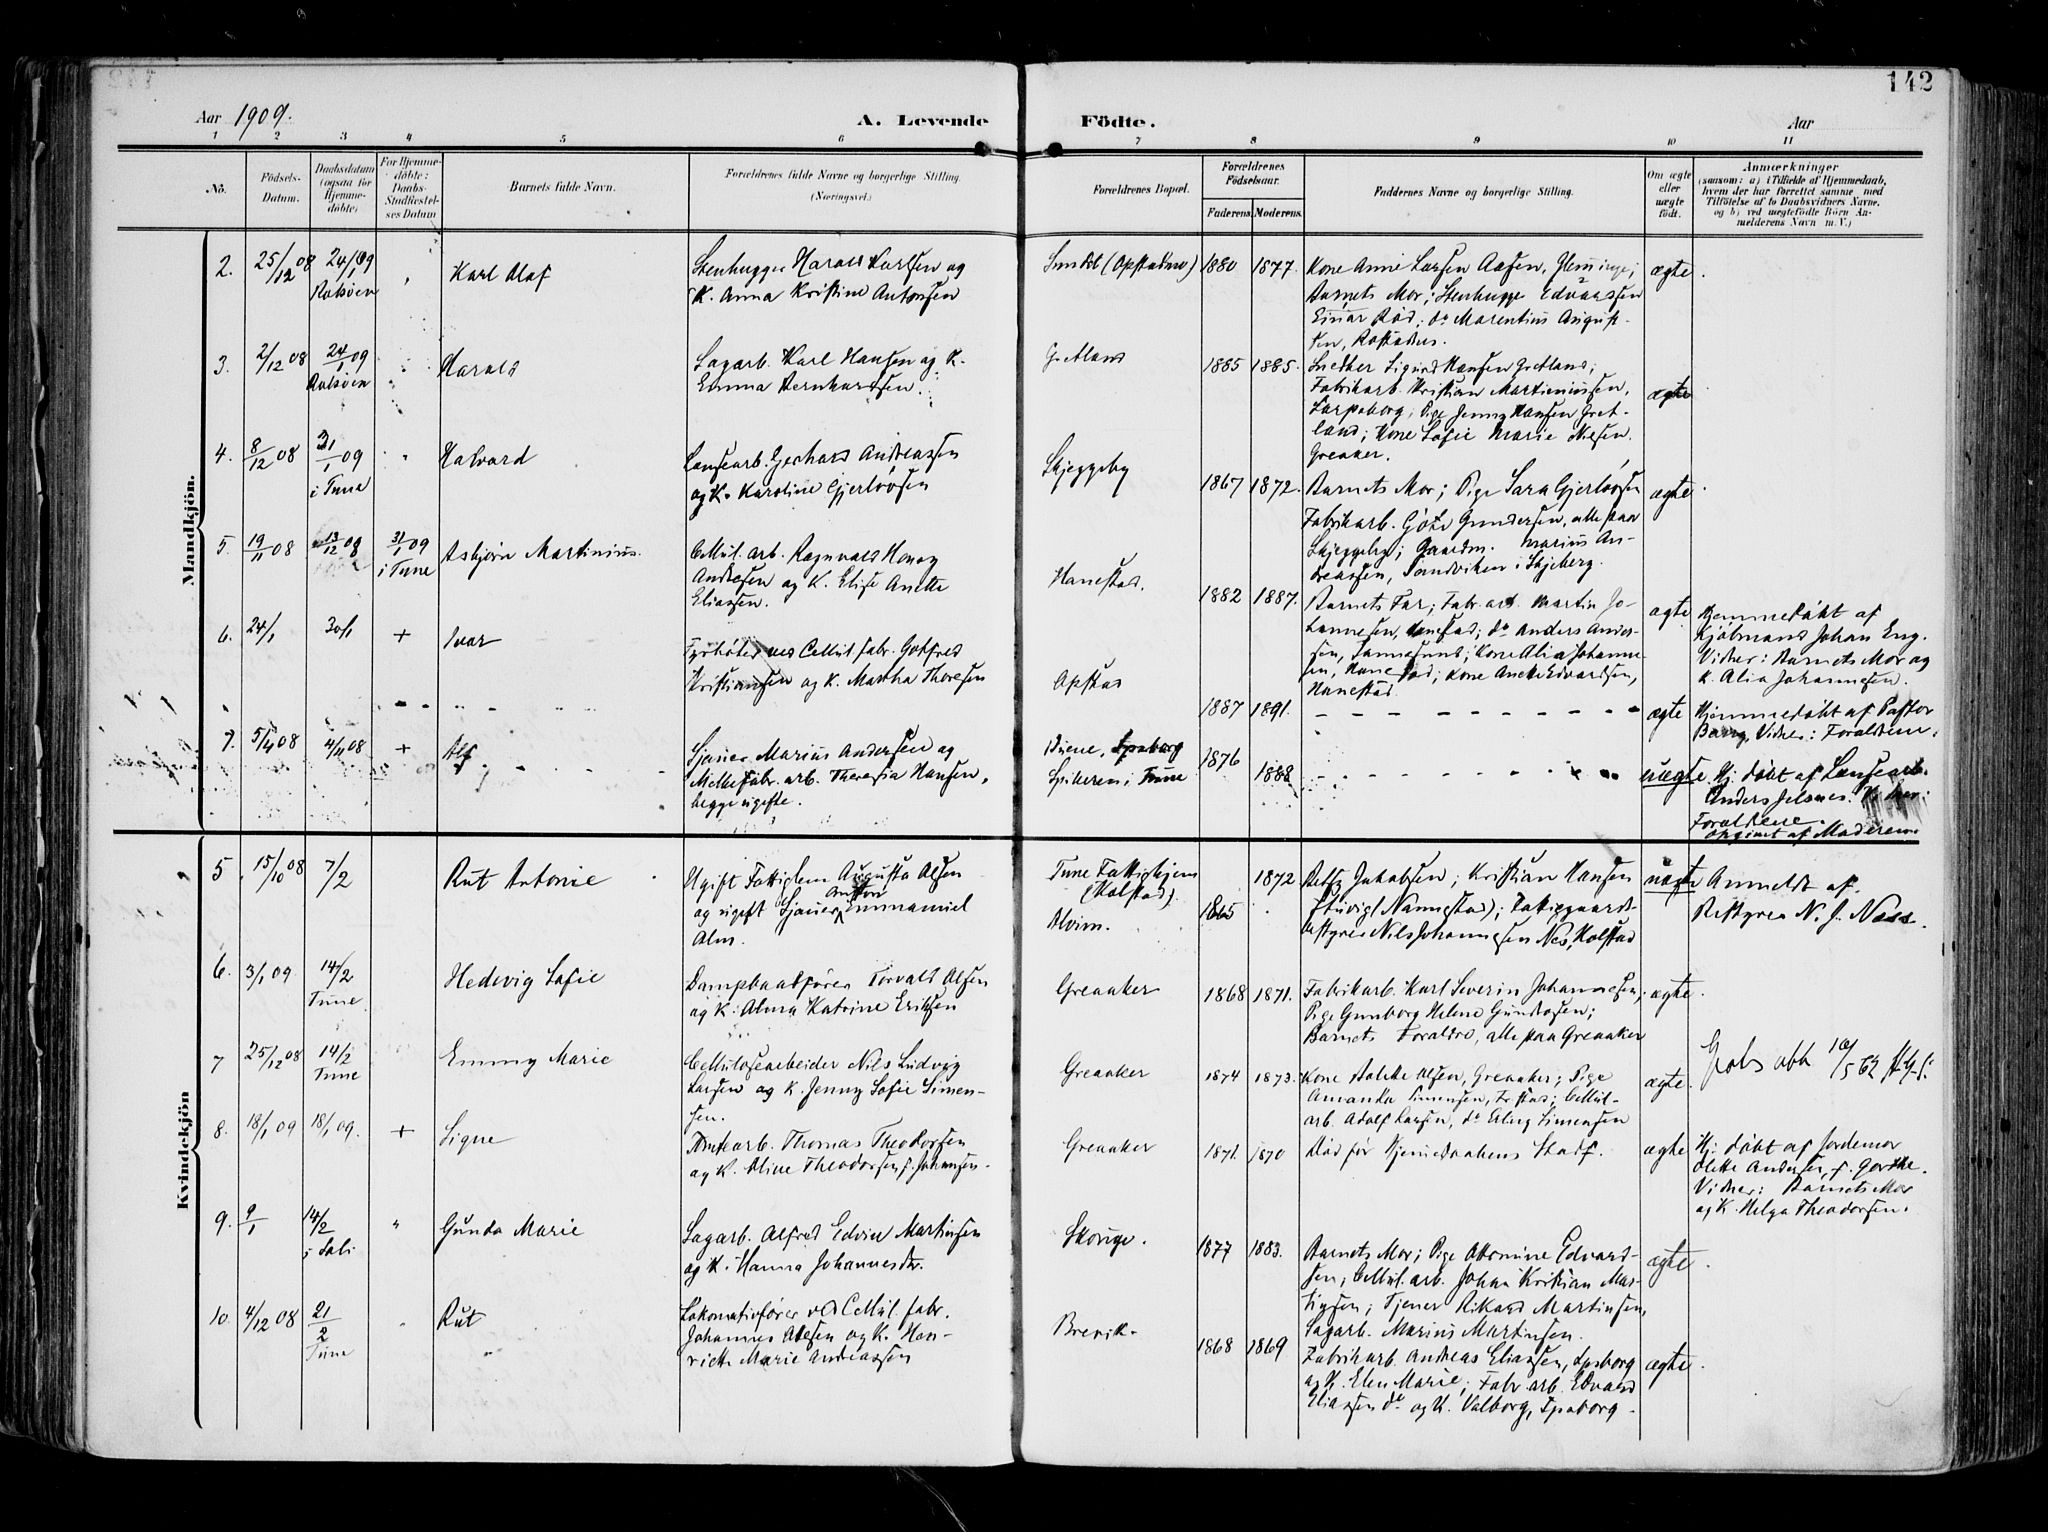 142
Aar 1909.
A. Levende
Födte.
Aar
1 2 3 4 5 6 7 8 9 10 11
No.
Födsels-
Datum.
Daabsdatum
(ogsaa for
Hjemme-
döbte)
For Hjemme-
döbte:
Daabs-
Stadfæstel-
ses Datum
Barnets fulde Navn.
Forældrenes fulde Navne og borgerlige Stilling.
(Næringsvei.)
Forældrenes Bopæl.
Forældrenes
Födselsaar.
Faderens. Moderens.
Faddernes Navne og borgerlige Stilling.
Om ægte
eller
uægte
födt.
Anmærkninger
(saasom: a) i Tilfælde af Hjemmedaab,
hvem der har forrettet samme med
Tilföielse af to Daabsvidners Navne.
og b) ved uægtefödte Börn An-
melderens Navn m. V.)
Mandkjön.
2. 25/12 08
24/1 09
Rolsöen
Karl Olaf
Stenhugger Harald Karlsen og
K. Anna Kristine Antonsen
Sundet (Opstadmo)
1880 1877.
Kone Anne Larsen Aasen,
Barnets Mor; Stenhugge Edvardsen
Einar Röd; do Marentius August-
sen,
ægte
3. 2/12 08
24/1 09
Rolsöen
Harald
Sagarb. Karl Hansen og K.
Emma Bernhardsen.
Gretland
1885 1885.
Snedker Sigurd Hansen Gretland;
Fabrikarb. Kristian Martiniussen,
Sarpsborg; Pige Jenny Hansen Gret-
land; Kone Sofie Marie Nilsen.
Greaker.
ægte
4. 8/12 08
31/1 09
i Tune
Halvard
Landsearb. Gerhard Andreassen
og K. Karoline Gjerlövsen
Skjeggeby
1867 1872.
Barnets Mor; Pige Sara Gjerlövsen
Fabrikarb. Göte Gundersen, alle paa
Skjeggeby; Gaardm. Marius An-
dreassen, Sandviken i Skjeberg.
ægte
5. 19/11 08
13/12 08
31/1 09
i Tune
Asbjörn Martinius.
Cellul. arb. Ragnvald
Andresen og K. Elise Anette
Eliassen.
Hanestad.
1882 1887.
Barnets Far; Fabr. arb. Martin Jo-
hannesen, Hanestad; do Anders Ander-
sen, Sannesund; Kone Alia Johanne-
sen, Hanestad; Kone Anette Edvardsen,
Hanestad.
ægte
Hjemmedöbt af
Kjöbmand Johan Eng.
Vidner: Barnets Mor og
K. Alia Johannesen.
6. 24/1
30/1
+
Ivar
Fyrböter ved Cellul. fabr. Gotfred
Kristiansen og K. Martha Thoresen
Opstad
1887 1891.
ægte
Hjemmedöbt af Pastor
Borrg, Vidner: Foraldrene.
7. 5/4 08
4/11 08
+
Alf
Sjauer Marius Andersen og
fabr. arb. Theresia Hansen,
begge ugifte.
Spikeren i Tune
1876
1888
uægte
Hj. döbt af Landsearb.
Anders Jelsnes. Vidner:
Foraldrene.
Opgivet af Moderen.
Kvindekjön
5 15/10 08
7/2
Rut Antonie
Ugift Fattiglem Augusta Olsen
og ugift Sjauer Anton Emmanuel
Alm.
Tune Fattighjem
(Kalstad).
Alvim.
1872
1865
Betsy Jakobsen; Kristian Hansen
Nannestad); Fattiggaard-
bestyrer Nils Johannesen Nes, Kolstad
uægte
Anmeldt af
Bestyrer N. J. Næss.
6. 3/1 09
14/2
Tune
Hedevig Sofie
Dampbaatförer Torvald Olsen
og K. Alma Katrine Eriksen
Greaaker
1868 1871.
Fabrikarb. Karl Severin Johannesen,
Pige Gunborg Helene Gundersen;
Barnets Foraldre, alle paa Greaaker
ægte
7 25/12 08
14/2
Tune
Emmy Marie
Cellulosearbeider Nils Ludvig
Larsen og K. Jenny Sofie Simen-
sen.
Greaaker
1874 1873.
Kone Bolette Olsen, Greaaker; Pige
Amanda Simensen, Cellul.
arb. Adolf Larsen, do Erling Simensen
ægte.
8. 18/1 09
18/1 09.
+
Signe
Thomas Theodorsen
og K. Oline Theodorsen f. Johansen.
Greaaker
1871. 1870
Död för Hjemedaabens Stadf.
ægte
Hj. döbt af Jordemor
Olette Andersen,
Vidner: Barnets Mor
og K. Helga Theodorsen.
9. 9/1
14/2
i Soli
Gunda Marie
Sagarb. Alfred Edvin Martinsen
og K. Hanna Johannesdtr.
1877 1883.
Barnets Mor; Pige Edvard-
sen, Cellul. arb. Johan Kristian
Tjener Rikard Martinsen,
Sagarb. Marius Martinsen.
ægte
10. 4/12 08
21/2
Tune
Rut
Lokomotivförer ved Cellul. fabr.
Johannes Olsen og K. Hen-
riette Marie Andreassen
Brevik.
1868 1869
Fabrikarb. Andreas Eliassen, Spsborg
og K. Elen Marie; Fabr. arb. Edvard
Eliassen do og K. Valborg, Spsborg.
ægte